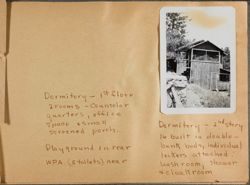 Dormitory - 1st floor
3 rooms - Counselor
quarters, office
space & small
screened porch.
Playground in rear
WPA (3 toilets) near
Dormitory - 2nd story
built in double-
bunk beds, individual
lockers attached.
washroom, shower
& cloakroom